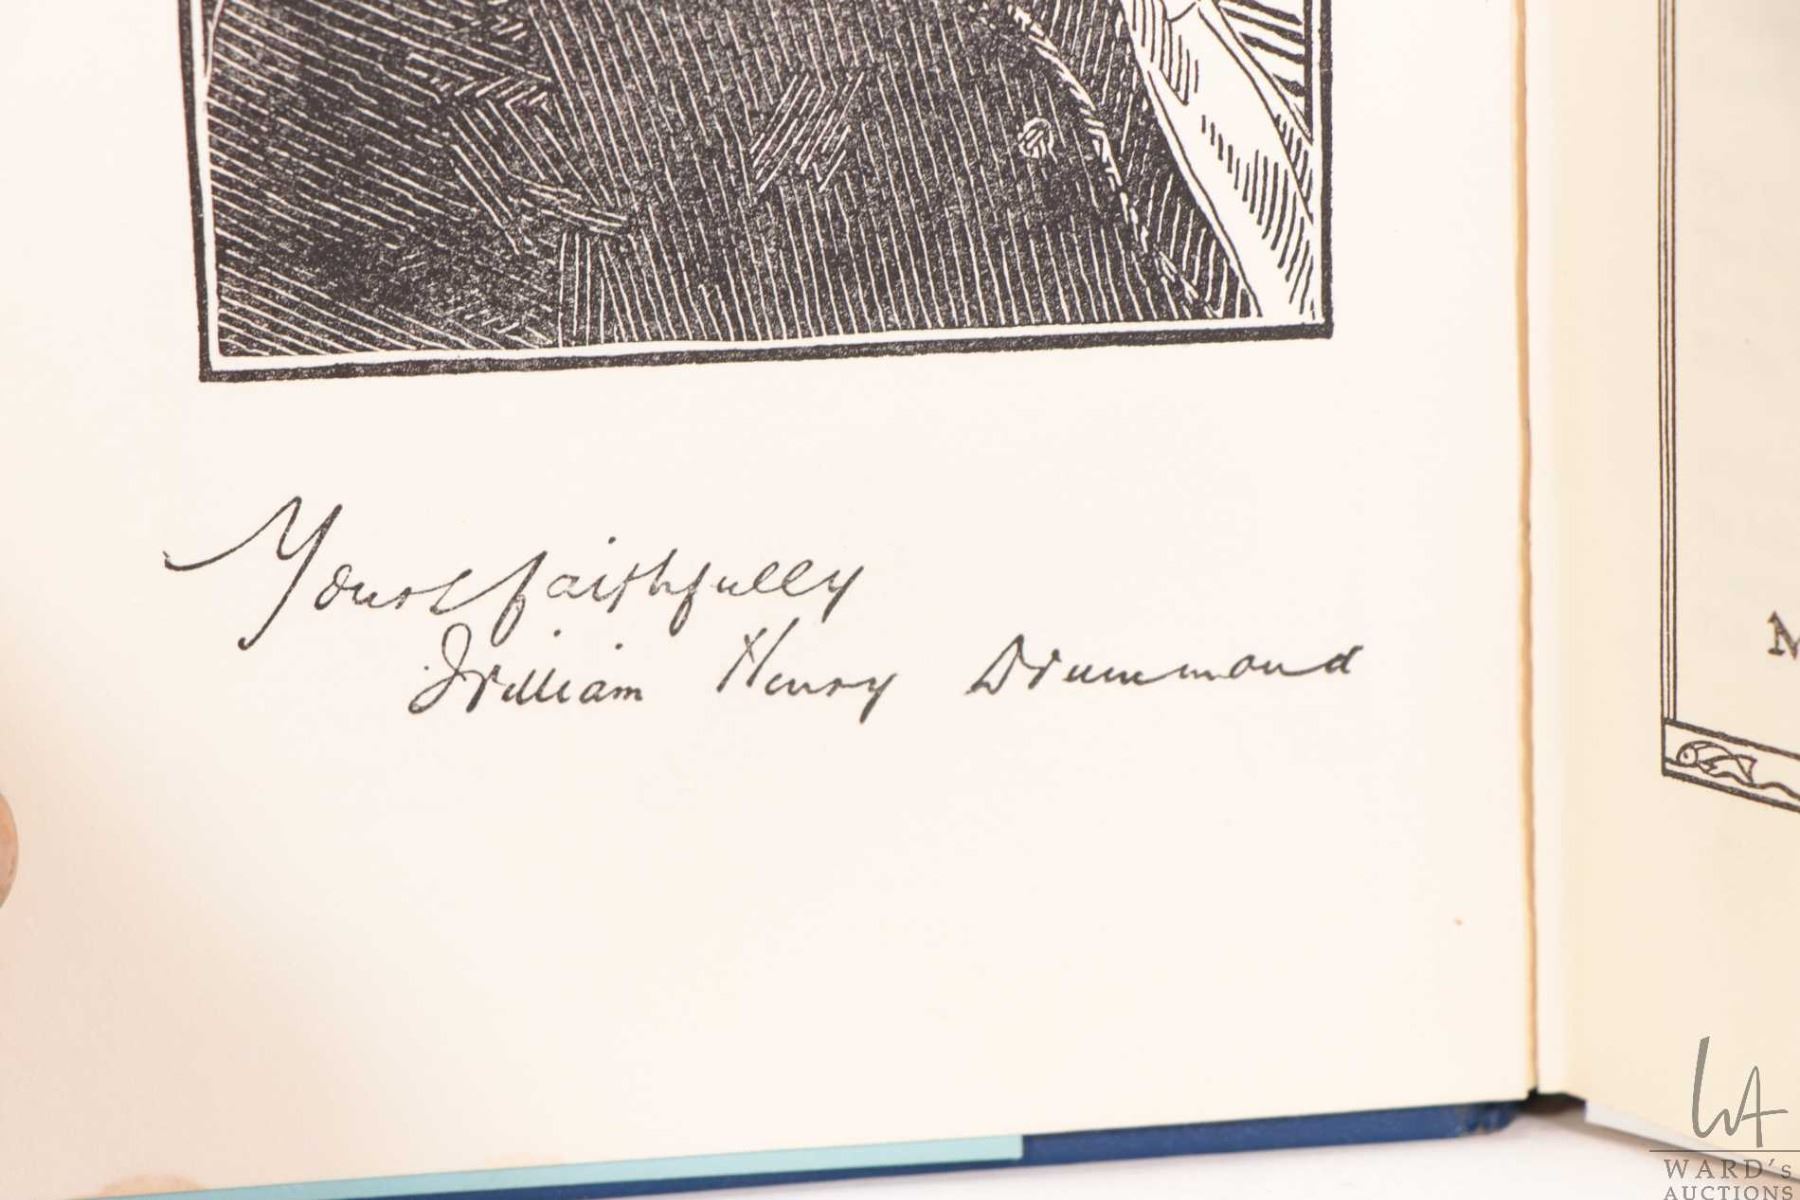 Yours faithfully
William Henry Drummond
M
WA
WARD's
AUCTIONS